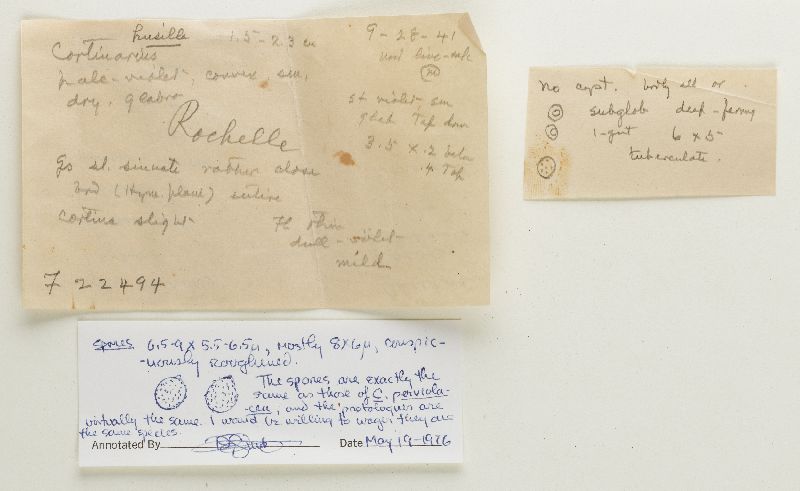 pusilla 1.5-2.3 cm
Cortinarius
pale-violet, convex, sm,
dry, glabro
Rochelle
Go sl. sinuate rather close
brd (Hym. plane) entire
cortina slight
Fl thin
dull-violet
mild
F 22494
9-28-41
und live-oak
st violet-sm
glab Tap down
3.5 x .2 below
.4 Top
no cyst.
subglob deep-ferrug
1-gut 6 x 5
tuberculate.
spores 6.5-9 x 5.5-6.5µ, mostly 8x6µ, conspic-
-uously roughened.
The spores are exactly the
same as those of C. perviola-
cea, and the protologues are
virtually the same. I would be willing to wager they are
the same species.
Annotated By Date May 19-1976